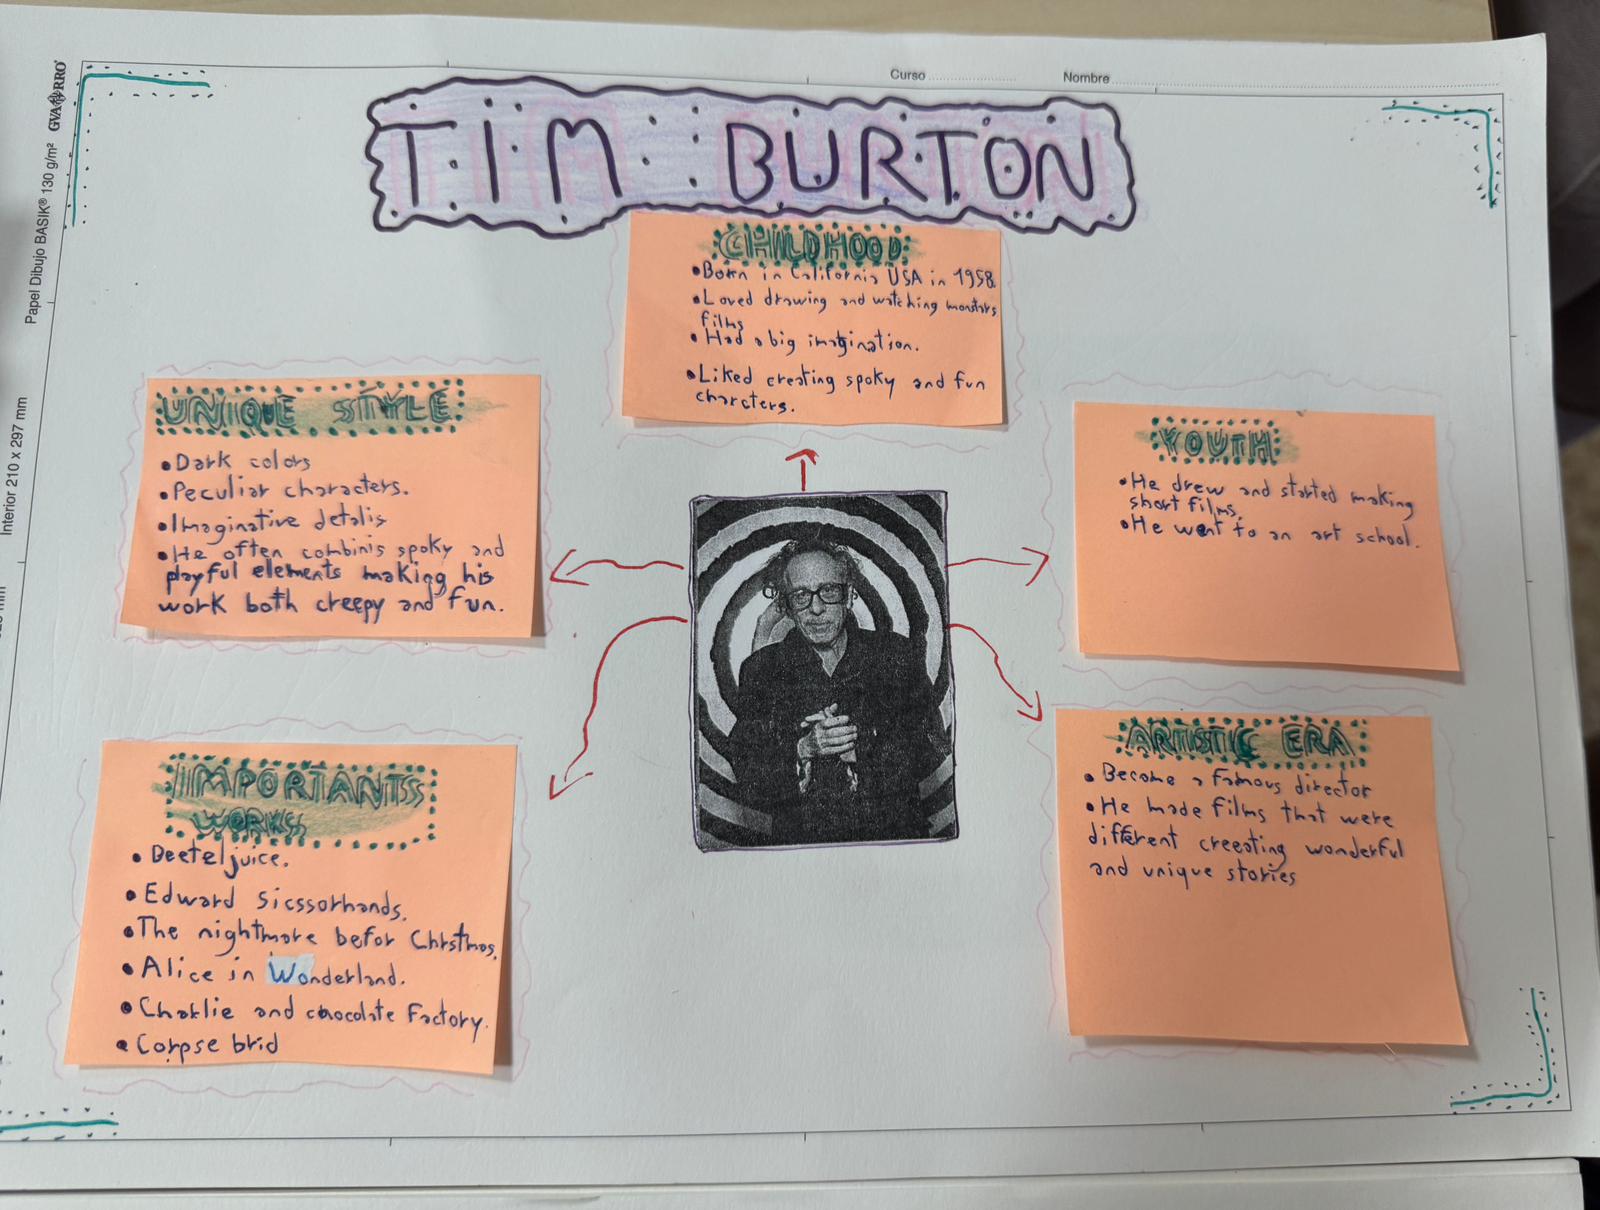 Curso
Nombre
GVARRO
Papel Dibujo BASIK® 130 g/m²
Interior 210 x 297 mm
TIM BURTON
CHILDHOOD
•Born in California USA in 1958.
•Loved drawing and watching monsters
films
•Had a big imagination.
•Liked creating spoky and fun
charcters.
UNIQUE STYLE
•Dark colors
•Peculiar characters.
•Imaginative detalis
•He often combinis spoky and
playful elements making his
work both creepy and fun.
YOUTH
•He drew and started making
short films.
•He went to an art school.
IMPORTANTS
WORKS
•Beeteljuice.
•Edward Sicssorhands.
•The nightmare befor Chrstmas.
•Alice in Wonderland.
•Charlie and chocolate Factory.
•Corpse brid
ARTISTIC ERA
•Become a famous director
•He made films that were
different creeating wonderful
and unique stories